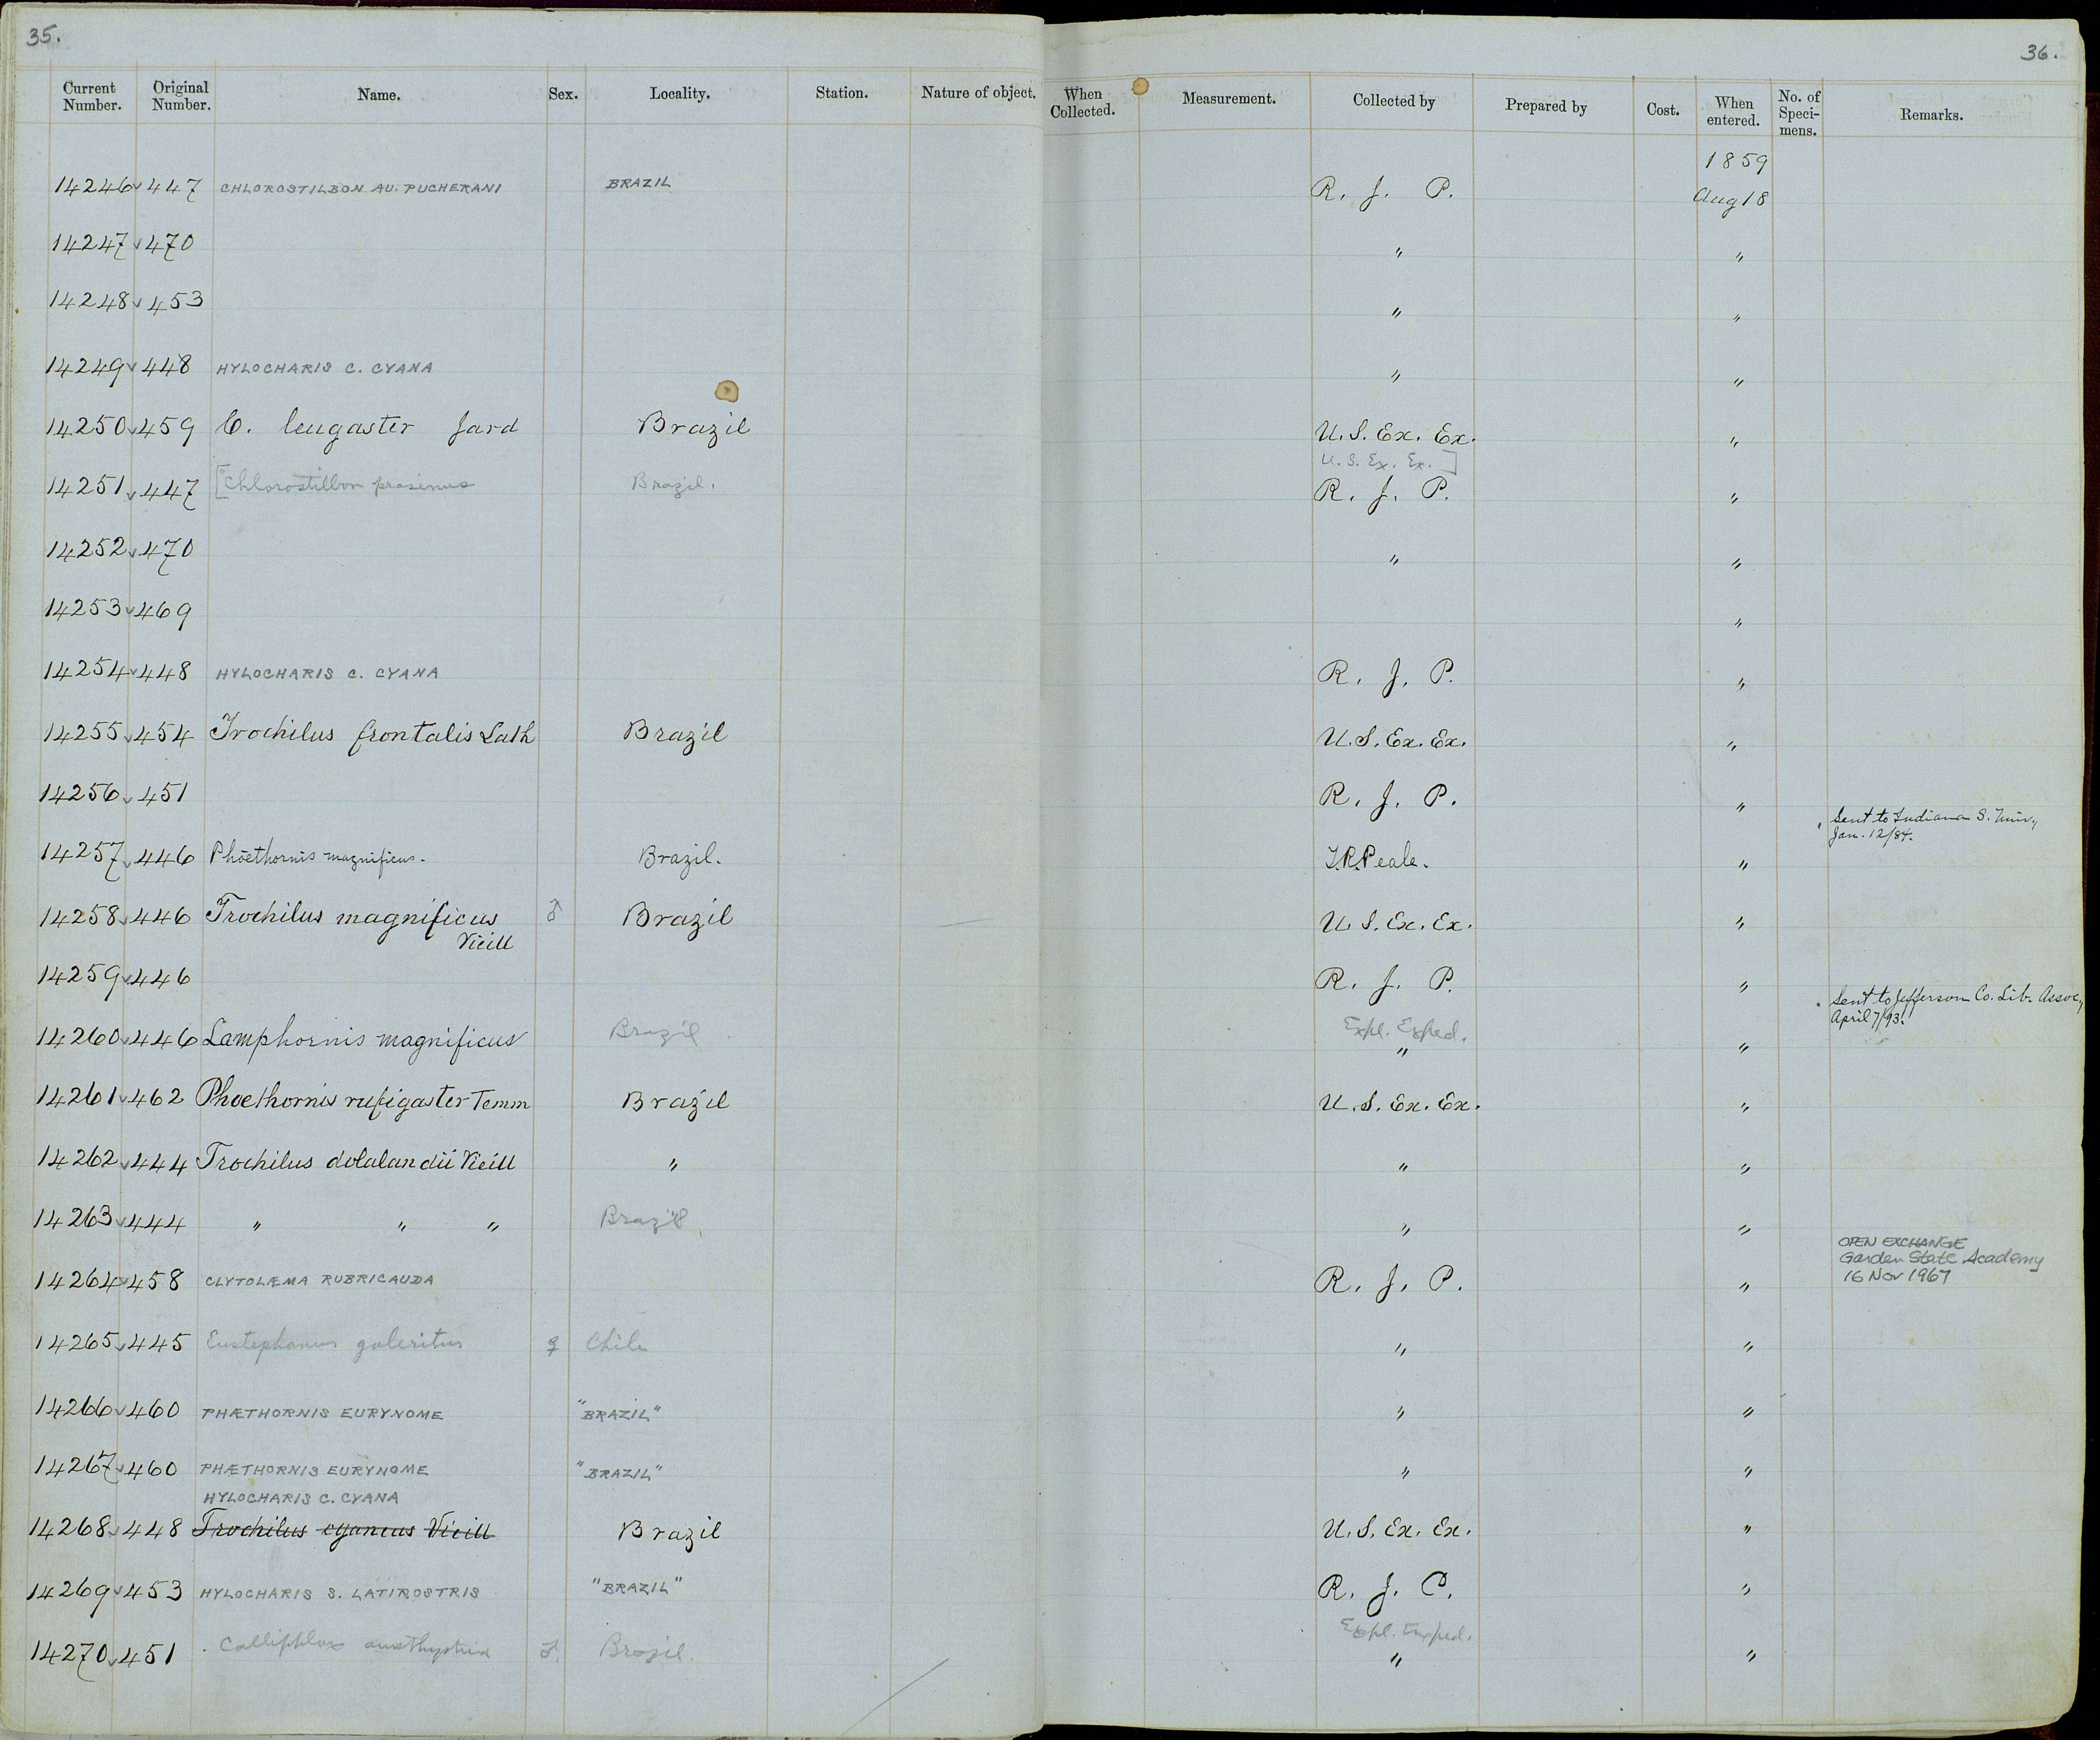 35.
36.
Current Number. Original Number. Name. Sex. Locality. Station. Nature of object. When Collected. Measurement. Collected by Prepared by Cost. When entered. No. of Speci-mens. Remarks.
1859
14246 447 CHLOROSTILBON AU. PUCHERANI BRAZIL R. J. P. Aug 18
14247 470 " "
14248 453 " "
14249 448 HYLOCHARIS C. CYANA " "
14250 459 C. leugaster Jard Brazil U.S. Ex. Ex. "
U.S. Ex. Ex.]
14251 447 [Chlorostilbon prasinus Brazil. R. J. P. "
14252 470 " "
14253 469 "
14254 448 HYLOCHARIS C. CYANA R. J. P. "
14255 454 Trochilus frontalis Lath Brazil U.S. Ex. Ex. "
14256 451 R. J. P. "
Sent to Indiana S. Univ,
Jan. 12/84.
14257 446 Phoethornis magnificus. Brazil. T.R.Peale. "
14258 446 Trochilus magnificus ♂ Brazil U.S. Ex. Ex. "
Vieill
14259 446 R. J. P. "
Sent to Jefferson Co. Lib. Assoc,
April 7/93.
Expl. Exped.
14260 446 Lamphornis magnificus Brazil " "
14261 462 Phoethornis rufigaster Temm Brazil U.S. Ex. Ex. "
14262 444 Trochilus dolalandii Vieill " " "
14263 444 " " " Brazil " "
OPEN EXCHANGE
Garden State Academy
16 Nov 1967
14264 458 CLYTOLÆMA RUBRICAUDA R. J. P. "
14265 445 Eustephanus galeritus ♀ Chile " "
14266 460 PHÆTHORNIS EURYNOME "BRAZIL" " "
14267 460 PHÆTHORNIS EURYNOME "BRAZIL" " "
HYLOCHARIS C. CYANA
14268 448 Trochilus cyaneus Vieill Brazil U.S. Ex. Ex. "
14269 453 HYLOCHARIS S. LATIROSTRIS "BRAZIL" R. J. P. "
Expl. Exped.
14270 451 Calliphlox amethystina ♂ Brazil. " "